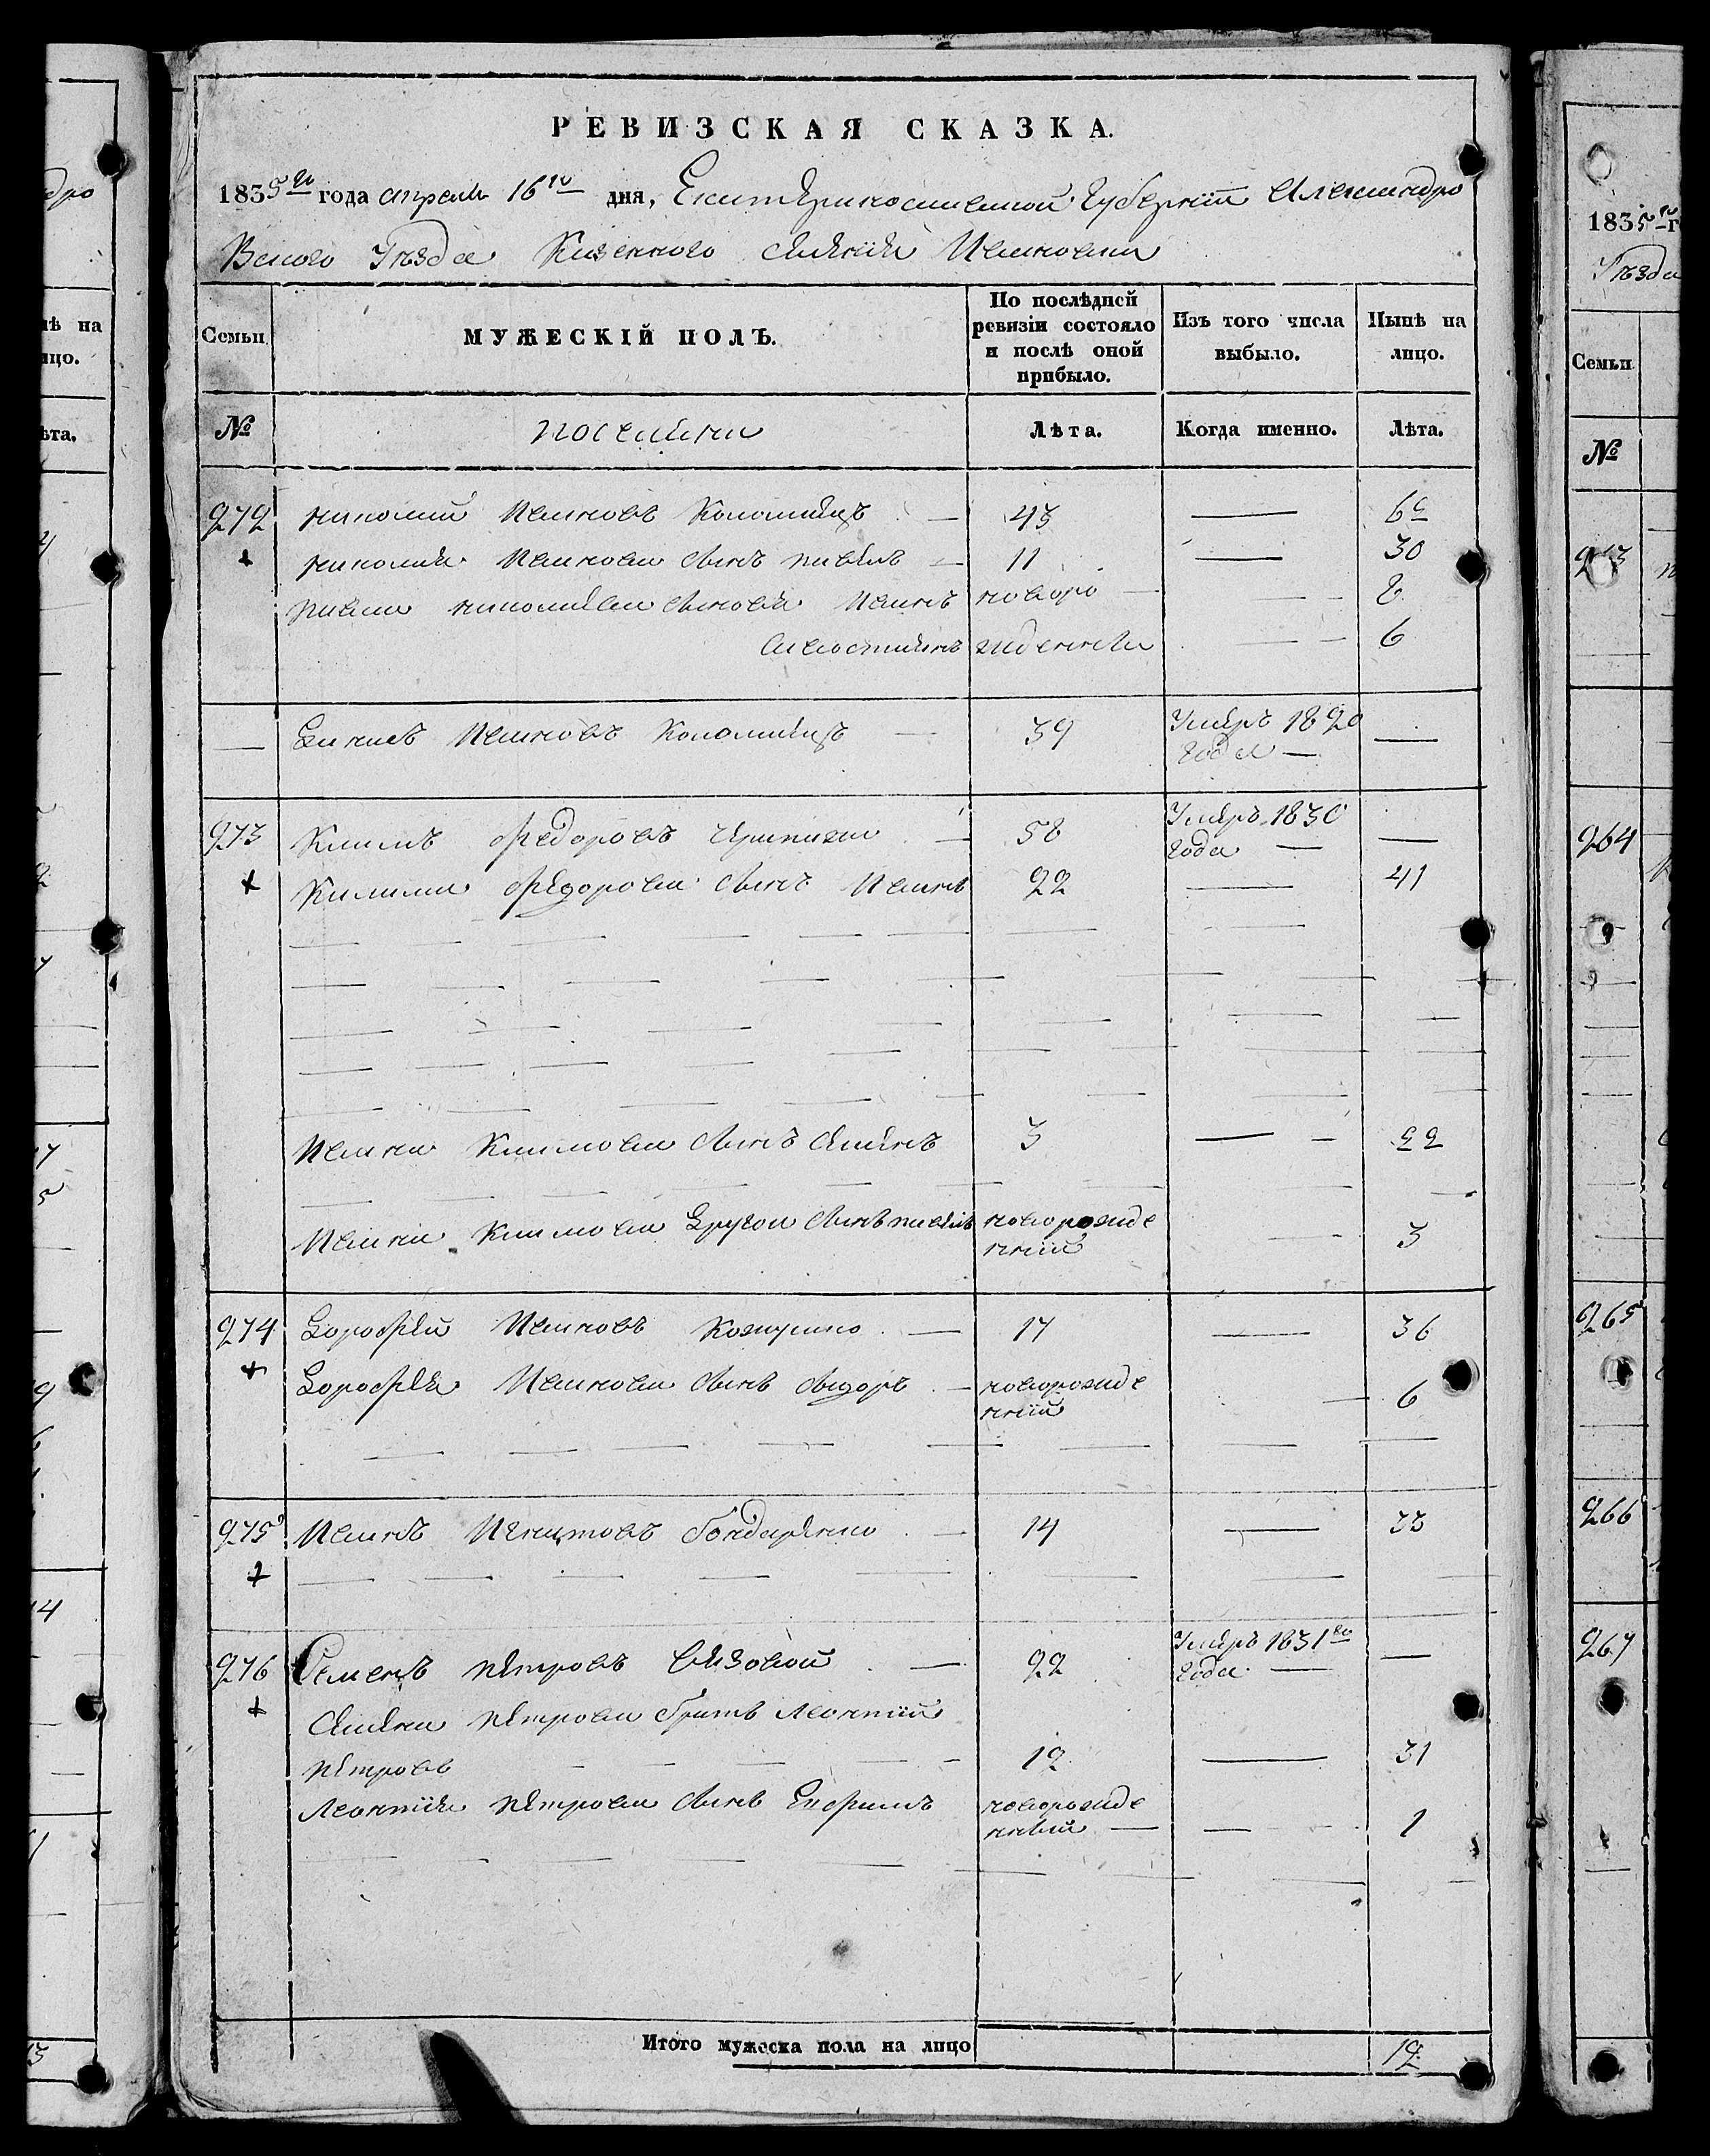 РЕВИЗСКАЯ СКАЗКА.
1835го года апреля 16го дня, Екатериославской Губернии Александро
Вского Уѣзда Казенного селения Ивановки
Семьи
МУЖЕСКІЙ ПОЛЪ.
По послѣдней ревизіи состояло и послѣ оной прибыло.
Изъ того числа выбыло.
Нынѣ на лицо.
№
поселяни
Лѣта.
Когда именно.
Лѣта.
272 николай Ивановъ Коломиецъ — 43 — 62
+ николая Иванова сынъ павелъ — 11 — 30
павла николаева сыновья Иванъ новоро — 8
Севостиянъ жденныи — 6
— Данило Ивановъ Коломиецъ — 39 Умеръ 1820 —
года —
273 Климъ Федоровъ — 58 Умеръ 1830 —
года —
+ Клима Федорова сынъ Иванъ 22 — 41
Ивана Климова сынъ Семенъ 3 — 22
Ивана Климова Другой сынъ павелъ новорожде — 3
нний
274 Дорофей Ивановъ Кожушко — 17 — 36
+ Дорофея Иванова сынъ Сидоръ — новорожде — 6
нний
275 Иванъ Игнатовъ бондаренко — 14 — 33
+
276 Семенъ петровъ — 22 Умеръ 1831го —
года —
+ Семена петрова братъ леонтий
петровъ — 12 — 31
леонтия петрова сынъ Ефимъ новорожде
нный — 1
Итого мужеска пола на лицо 12